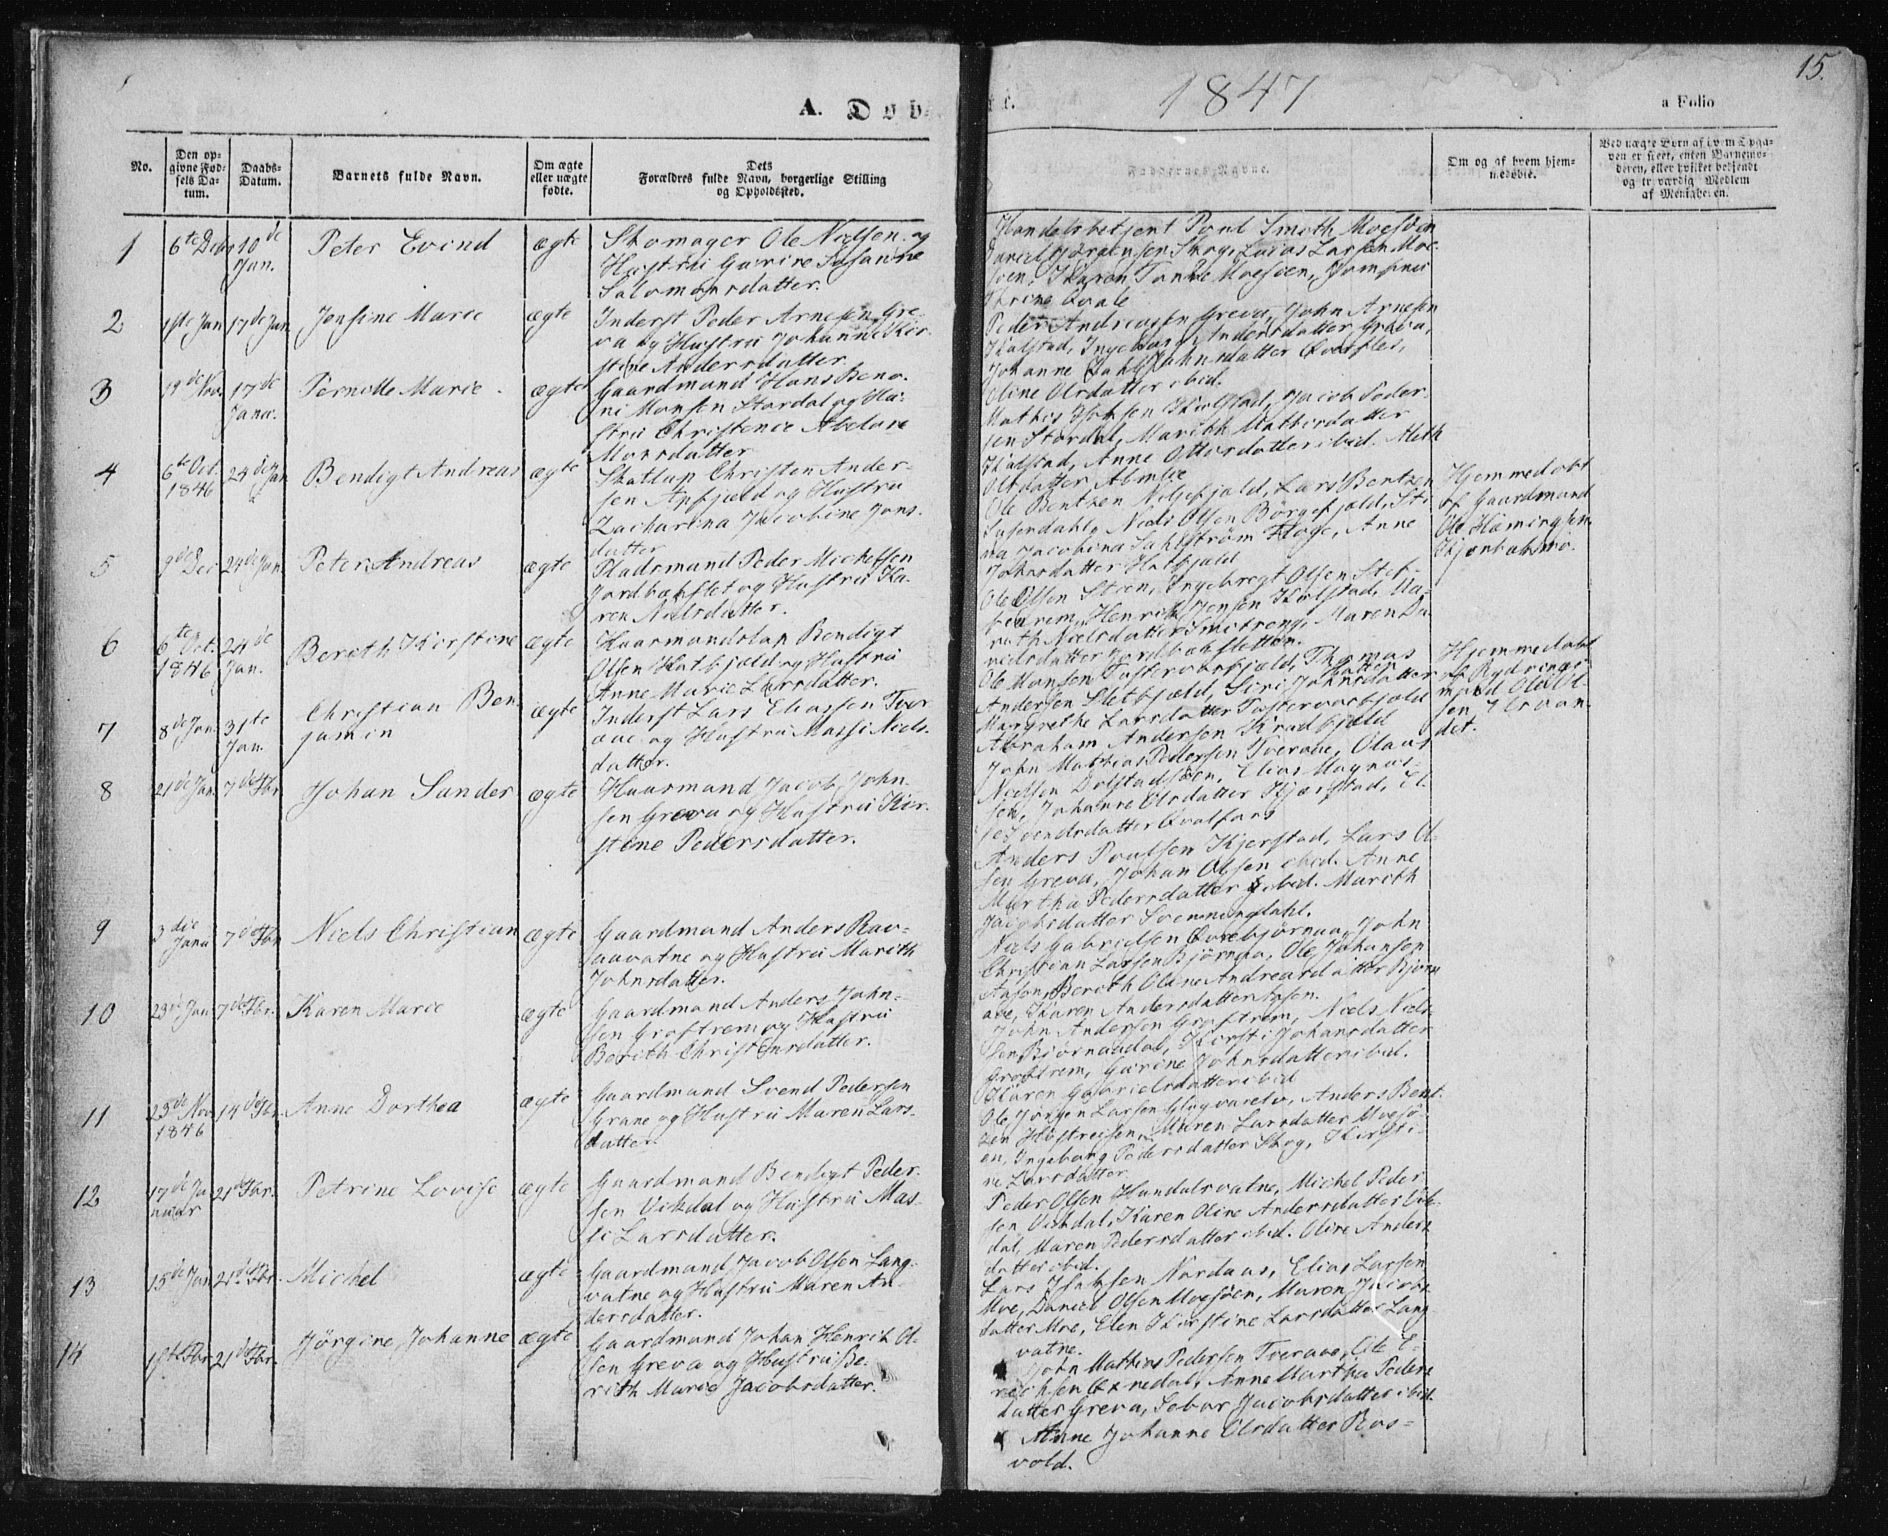 A. Døb-
te.
1847
15.
a Folio
No.
Den op-
givne Fød-
sels Da-
tum.
Daabs-
Datum.
Barnets fulde Navn.
Om ægte
eller uægte
fødte.
Dets
Forældres fulde Navn, borgerlige Stilling
og Opholdssted.
Faddernes Navne.
Om og af hvem hjem-
medøbt.
Ved uægte Børn af hvem Opga-
ven er skeet, enten Barnemo-
deren, eller hvilket bekjendt
og troværdig Medlem
af Menigheden.
1
6te Decbr
10de
Jan.
Peter Evind
ægte
Skomager Ole Nielsen og
Hustru Gurine Susanne
Salomonsdatter.
Handelsbetjent Poul Smith Moesöen
Daniel Jörgensen Skog, Lucas Larsen Moe-
söen, Karen Tande Moesöen, Jomfrue
Trine Qvale
2
1ste Jan
17de Jan
Jonsine Marie
ægte
Inderst Peder Arnesen Gre-
va og Hustru Johanne Kir-
stine Andersdatter
Peder Andreassen Greva, John Arnesen
Kulstad, Ingeborg Andersdatter Greva,
Johanne Johnsdatter Qvefles,
Oline Olsdatter ibid.
3
19de Nov.
17de
Januar.
Pernille Marie
ægte
Gaardmand Hans Beno-
ni Monsen Stordal og Hu-
stru Christence Abelone
Monsdatter
Mathis Kulstad, Jacob Peder-
sen Stordal, Marith Mathisdatter
Kulstad, Anne Ottersdatter ibid. Aleth
Olsdatter Almlie
4
6te Oct.
1846
24de Jan
Bendigt Andreas
ægte
Skatlap Christen Ander-
sen Apfjeld og Hustru
Zacharina Jacobine Jons-
datter
Ole Bentzen, Lars Bentzen
Susendahl, Niels Olsen Börgefjeld, Sti-
na Jacobina Sahlström Hage, Anne
Johnsdatter Hatfjeld
Hjemmedøbt
af Gaardmand
Ole Hemingsen
5
9de Dec
24de Jan.
Peter Andreas
ægte
Pladsmand Peder Michelsen
Jordbækslet og Hustru Ka-
ren Nielsdatter.
Ole Olsen Steen, Ingebregt Olsen
Henrik Jensen Kulstad, Ma-
rith Nielsdatter Smedseng, Maren Da-
nielsdatter Jordbæksletten.
6
6te Oct.
1846
24de
Jan.
Bereth Kirstine
ægte
Huusmandslap Bendigt
Olsen Hatfjeld og Hustru
Anne Marie Larsdatter.
Ole Monsen Fustervasfjeld, Thomas
Andersen Sletfjeld, Siri Johnsdatter
Margrethe Larsdatter Fustervasfjeld
Abraham Andersen Krudfjeld
Hjemmedøbt
af Rydnings-
mand Ole Ol-
sen
7
8de Jan
31te
Jan.
Christian Ben-
jamin
ægte
Inderst Lars Eliassen Tver-
aae og Hustru Massi Niels-
datter.
John Mathias Pedersen Tveraae, Olaus
Nielsen Dolstadaasen, Elias Magnus-
sen, Johanne Olsdatter Kjærstad,
8
21de Jan.
7de Fbr
Johan Sander
ægte
Huusmand Jacob John-
sen Greva og Hustru Kir-
stine Pedersdatter.
Anders Poulsen Kjerstad, Lars Ol-
sen Greva, Johan Olsen ibid. Anne
Martha Pedersdatter ibid. Marith
Jacobsdatter Svenningdahl.
9
3die
Janu
7de Fbr
Niels Christian
ægte
Gaardmand Anders
og Hustru Marith
Johnsdatter.
Niels Gabrielsen, John
Christian Larsen Björnaa, Ole Johansen
Aasen, Bereth Oline Andreasdatter Björn-
aae, Karen Andersdatter Aasen.
10
23de Jan
7de Fbr.
Karen Marie
ægte
Gaardmand Anders John-
sen Groftrem og Hustru
Bereth Christensdatter.
John Andersen Groftrem, Niels Niel-
sen Björnaadal, Kirsti Johansdatter
Groftrem, Gurine Johnsdatter ibid.
Karen Gabrielsdatter ibid
11
23de Nov
1846
14de Fbr.
Anne Dorthea
ægte
Gaardmand Svend Pedersen
Grane og Hustru Maren Lars-
datter.
Ole Jörgen Larsen, Anders Bent-
zen, Maren Larsdatter Moesö-
en, Ingeborg Pedersdatter Skog, Kirsti-
ne Larsdatter
12
17de Ja
nuar
21de Fbr.
Petrine Lovise
ægte
Gaardmand Bendigt Peder-
sen Vikdal og Hustru Mas-
si Larsdatter.
Peder Olsen Hundalsvatne, Michel Peder-
sen Vikdal, Karen Oline Andersdatter Vik-
dal, Maren Pedersdatter ibid. Oline Anders-
datter ibid.
13
15de Jan
21de Fbr.
Michel
ægte
Gaardmand Jacob Olsen Lang-
vatne og Hustru Maren An-
dersdatter.
Lars Nordaas, Elias Larsen
Moe, Daniel Olsen Moesöen, Maren Jacobs-
datter Moe, Elen Kirstine Larsdatter Lang-
vatne.
14
1ste Fbr.
21de Fbr.
Jörgine Johanne
ægte
Gaardmand Johan Henrik Ol-
sen Greva og Hustru Be-
rith Marie Jacobsdatter.
John Mathias Pedersen Tveraae, Ole E-
richsen, Anne Martha Peders-
datter Greva, Jacobsdatter ibid.
Anne Johanne Olsdatter Ros-
vold.